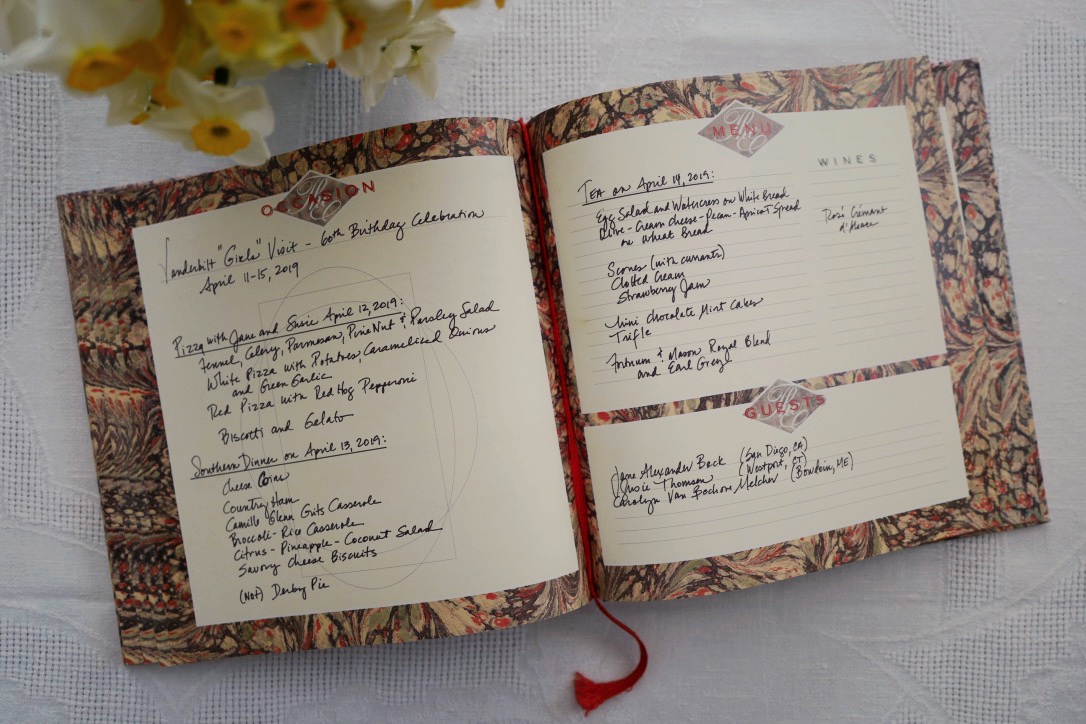 OCCASION
Vanderbilt "Girls" Visit - 60th Birthday Celebration
April 11-15, 2019
Pizza with Jane and Susie April 12, 2019:
Fennel, Celery, Parmesan, Pine Nut & Parsley Salad
White Pizza with Potatoes, Caramelized Onions
and Green Garlic
Red Pizza with Red Hog Pepperoni
Biscotti and Gelato
Southern Dinner on April 13, 2019:
Cheese Coins
Country Ham
Camille Glenn Grits Casserole
Broccoli-Rice Casserole
Citrus-Pineapple-Coconut Salad
Savory Cheese Biscuits
(Not) Derby Pie
MENU
Tea on April 14, 2019:
Egg Salad and Watercress on White Bread
Olive-Cream Cheese-Pecan-Apricot Spread
on Wheat Bread
Scones (with currants)
Clotted Cream
Strawberry Jam
Mini Chocolate Mint Cakes
Trifle
Fortnum & Mason Royal Blend
and Earl Grey
WINES
Rosé Crémant
d'Alsace
GUESTS
Jane Alexander Beck (San Diego, CA)
Susie Thomson (Westport, CT)
Carolyn Van Melcher (Bowdoin, ME)